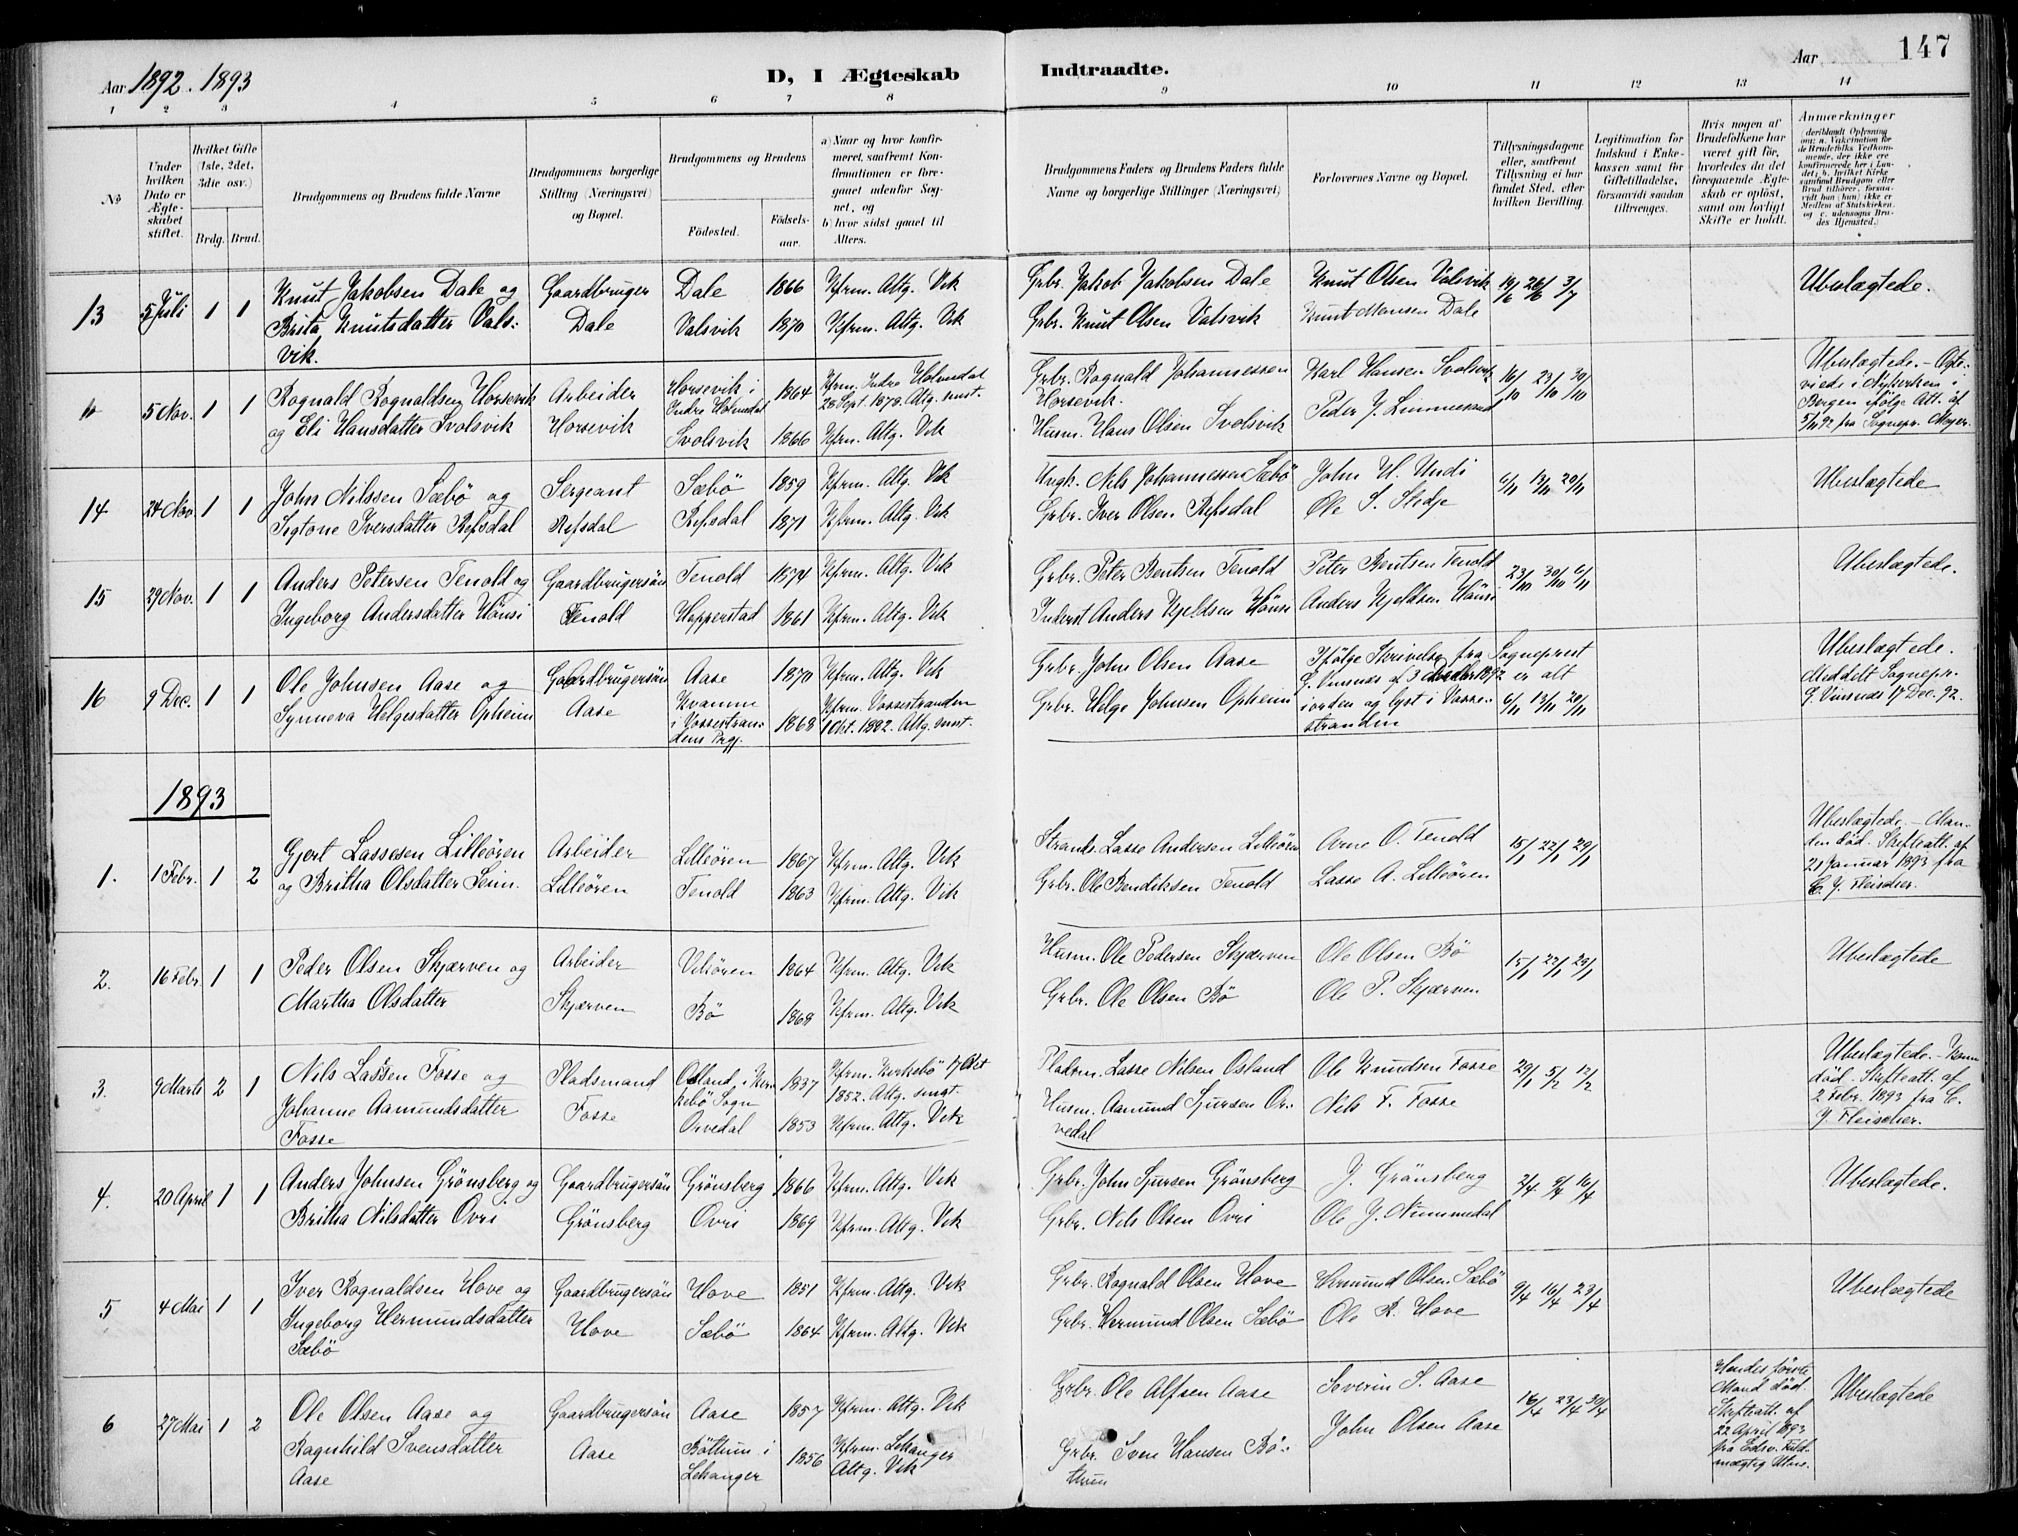 Aar 1892. 1893
D, I Ægteskab Indtraadte.
Aar 147
1 2 3 4 5 6 7 8 9 10 11 12 13 14
No
Under hvilken Dato er Ægteskabet stiftet.
Hvilket Gifte (1ste, 2det, 3die osv.)
Brdg. Brud.
Brudgommens og Brudens fulde Navne
Brudgommens borgerlige Stilling (Næringsvei) og Bopæl.
Brudgommens og Brudens
Fødested. Fødselsaar.
a) Naar og hvor konfirmeret, saafremt Konfirmationen er foregaaet udenfor Sognet, og
b) hvor sidst gaaet til Alters.
Brudgommens Faders og Brudens Faders fulde Navne og borgerlige Stillinger (Næringsvei)
Forlovernes Navne og Bopæl.
Tillysningsdagene eller, saafremt Tillysning ei har fundet Sted, efter hvilken Bevilling.
Legitimation for Indskud i Enkekassen samt for Giftetilladelse, forsaavidt saadan tiltrænges.
Hvis nogen af Brudefolkene har været gift før, hvorledes da det foregaaende Ægteskab er opløst, samt om lovligt Skifte er holdt.
Anmærkninger (deriblandt Oplysning om: a. Vakcination for de Brudefolks Vedkommende, der ikke ere konfirmerede her i Landet; b. hvilket Kirkesamfund Brudgom eller Brud tilhører, forsaavidt han (hun) ikke er Medlem af Statskirken, og c. udensogns Brudes Hjemsted.)
13 5 Juli 1 1 Knut Jakobsen Dale og Gaardbruger Dale 1866 Kfrm. Altg. Vik Grbr. Jakob Jakobsen Dale Knut Olsen Valsvik 19/6 26/6 3/7 Ubeslægtede.
Brita Knutsdatter Vals- Dale Valsvik 1870 Kfrm. Altg. Vik Grbr. Knut Olsen Valsvik Knut Monsen Dale
vik.
5 Nov. 1 1 Rognald Rognaldsen Horsevik Arbeider Horsevik i Indre Holmedal 1864 Kfrm. Indre Holmedal 28 Sept. 1878. Altg. smst. Grbr. Rognald Johannessen Horsevik. Karl Hansen Svolsvik 16/10 23/10 30/10 Ubeslægtede. - Ægteviede i Nykirken i Bergen ifølge Att. af 5/11 92 fra Sognepr. Meyer.
og Eli Hansdatter Svolsvik Horsevik Svolsvik 1866 Kfrm. Altg. Vik Husm. Hans Olsen Svolsvik Peder J. Limmesand
14 24 Nov. 1 1 John Nilssen Sæbö og Sergeant Sæbö 1859 Kfrm. Altg. Vik Ungk. Nils Johannessen Sæbö John H. Undi 6/11 13/11 20/11 Ubeslægtede
Sigtone Iversdatter Refsdal Refsdal Refsdal 1871 Kfrm. Altg. Vik Grbr. Iver Olsen Refsdal Ole S. Stedje
15 29 Nov. 1 1 Anders Petersen Tenold og Gaardbrugersön Tenold 1874 Kfrm. Altg. Vik Grbr. Peter Bentsen Tenold Peter Bentsen Tenold 23/10 30/10 6/11 Ubeslægtede.
Ingeborg Andersdatter Hönsi Tenold Hopperstad 1861 Kfrm. Altg. Vik Inderst Anders Kjeldsen Hönsi Anders Kjeldsen Hönsi
16 9 Dec. 1 1 Ole Johnsen Aase og Gaardbrugersön Aase 1870 Kfrm. Altg. Vik Grbr. John Olsen Aase Ifölge Skrivelse fra Sogneprest G. Vinsnes af 3 Decbr 1892 er alt iorden og lyst i Vossestranden 6/11 13/11 20/11 Ubeslægtede. Meddelt Sognepr. G. Vinsnes 17 Dec. 92.
Synneva Helgesdatter Opheim Aase Kvamme i Vossestrandens Prgj. 1868 Kfrm. Vossestranden 1 Okt. 1882. Altg. smst. Grbr. Helge Johnsen Opheim
1893
1. 1 Febr. 1 2 Gjert Lassesen Lilleören Arbeider Lilleören 1867 Kfrm. Altg. Vik Strands. Lasse Andersen Lilleören Arne O. Tenold 15/1 22/1 29/1 Ubeslægtede. - Manden död. Skifteatt. af 21 Januar 1893 fra C. J. Fleischer.
og Britha Olsdatter Seim. Lilleören Tenold 1863 Kfrm. Altg. Vik Grbr. Ole Bendiksen Tenold Lasse A. Lilleören
2. 16 Febr. 1 1 Peder Olsen Skjærven og Arbeider Vikören 1864 Kfrm. Altg. Vik Husm. Ole Pedersen Skjærven Ole Olsen Bö 15/1 22/1 29/1 Ubeslægtede
Martha Olsdatter Skjærven Bö 1868 Kfrm. Altg. Vik Grbr. Ole Olsen Bö Ole P. Skjærven
3. 9 Marts 2 1 Nils Lassen Fosse og Pladsmand Osland i Kirkebö Sogn 1837 Kfrm. Kirkebö 17 Okt 1852. Altg. smst. Pladsm. Lasse Nilsen Osland Ole Knudsen Fosse 29/1 5/2 12/2 Ubeslægtede. - Konen död. Skifteatt. af 2 Febr. 1893 fra C. J. Fleischer.
Johanne Aamundsdatter Fosse Fosse Orvedal 1853 Kfrm. Altg. Vik Husm. Aamund Sjursen Orvedal Nils T. Fosse
4. 20 April 1 1 Anders Johnsen Grönsberg og Gaardbrugersön Grönsberg 1866 Kfrm. Altg. Vik Grbr. John Sjursen Grönsberg J. Grönsberg 2/4 9/4 16/4 Ubeslægtede.
Britha Nilsdatter Ovri Grönsberg Ovri 1869 Kfrm. Altg. Vik Grbr. Nils Olsen Ovri Ole J. Nummedal
5 4 Mai 1 1 Iver Rognaldsen Hove og Gaardbrugersön Hove 1851 Kfrm. Altg. Vik Grbr. Rognald Olsen Hove Hermund Olsen Sæbö 9/4 16/4 23/4 Ubeslægtede
Ingeborg Hermundsdatter Sæbö Hove Sæbö 1864 Kfrm. Altg. Vik Grbr. Hermund Olsen Sæbö Ole R. Hove
6 27 Mai 1 2 Ole Olsen Aase og Gaardbrugersön Aase 1857 Kfrm. Altg. Vik Grbr. Ole Alfsen Aase Severin S. Aase 16/4 23/4 30/4 Hendes förste Mand död. Skifteatt. af 22 April 1893 fra Edsv. Fuldmægtig Ubeslægtede
Ragnhild Svensdatter Aase Aase Böthun i Lekanger 1856 Kfrm. Lekanger Altg. Vik Grbr. Sven Hansen Böthun John Olsen Aase